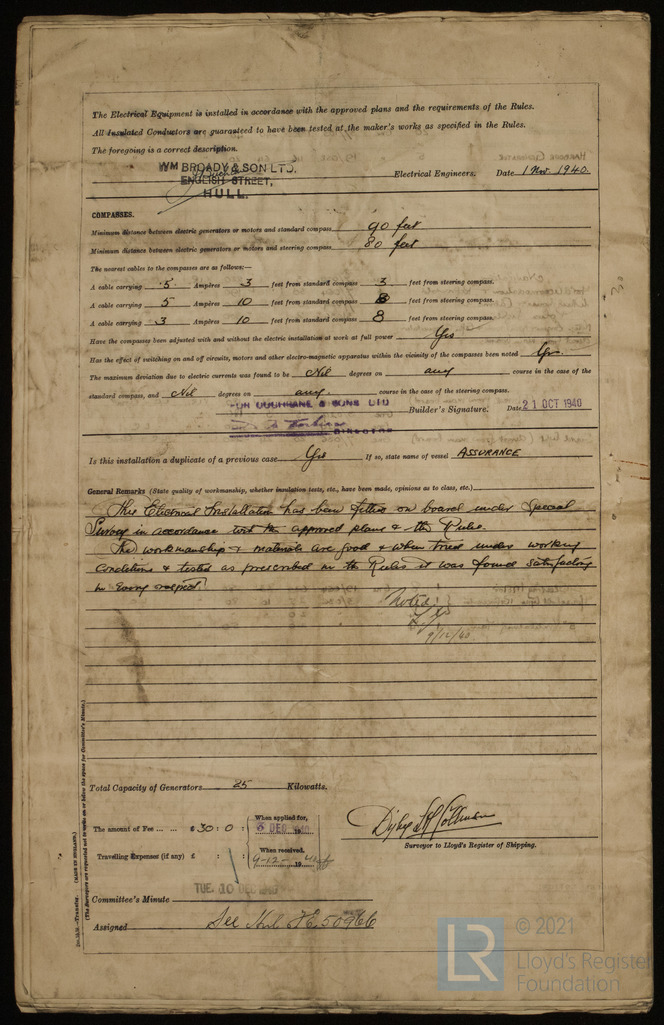 The Electrical Equipment is installed in accordance with the approved plans and the requirements of the Rules.
All Insulated Conductors are guaranteed to have been tested at the maker's works as specified in the Rules.
The foregoing is a correct description.
WM BROADY & SON LTD.
ENGLISH STREET,
HULL.
Electrical Engineers. Date 1 Nov. 1940.
COMPASSES.
Minimum distance between electric generators or motors and standard compass 90 feet
Minimum distance between electric generators or motors and steering compass 80 feet
The nearest cables to the compasses are as follows:—
A cable carrying .5 Ampères 3 feet from standard compass 3 feet from steering compass.
A cable carrying 5 Ampères 10 feet from standard compass 8 feet from steering compass.
A cable carrying 3 Ampères 10 feet from standard compass 8 feet from steering compass.
Have the compasses been adjusted with and without the electric installation at work at full power Yes
Has the effect of switching on and of circuits, motors and other electro-magnetic apparatus within the vicinity of the compasses been noted Yes.
The maximum deviation due to electric currents was found to be Nil degrees on any course in the case of the
standard compass, and Nil degrees on any course in the case of the steering compass.
FOR COCHRANE & SONS LTD
DIRECTOR
Builder's Signature. Date 21 OCT 1940
Is this installation a duplicate of a previous case Yes If so, state name of vessel ASSURANCE
General Remarks (State quality of workmanship, whether insulation tests, etc., have been made, opinions as to class, etc.)
This Electrical Installation has been fitted on board under Special
Survey in accordance with the approved plans & the Rules.
The workmanship & materials are good & when tried under working
conditions & tested as prescribed in the Rules it was found satisfactory
in every respect.
Noted
9/12/40
Total Capacity of Generators 25 Kilowatts.
The amount of Fee ... ... £ 30 : 0 :
When applied for,
6 DEC 1940
Travelling Expenses (if any) £ : :
When received,
9-12- 1940
Surveyor to Lloyd's Register of Shipping.
TUE. 10 DEC 1940
Committee's Minute
Assigned See Hul F.E. 50966
(MADE IN ENGLAND.)
(The Surveyors are requested not to write on or below the space for Committee's Minute.)
LR
© 2021
Lloyd's Register
Foundation